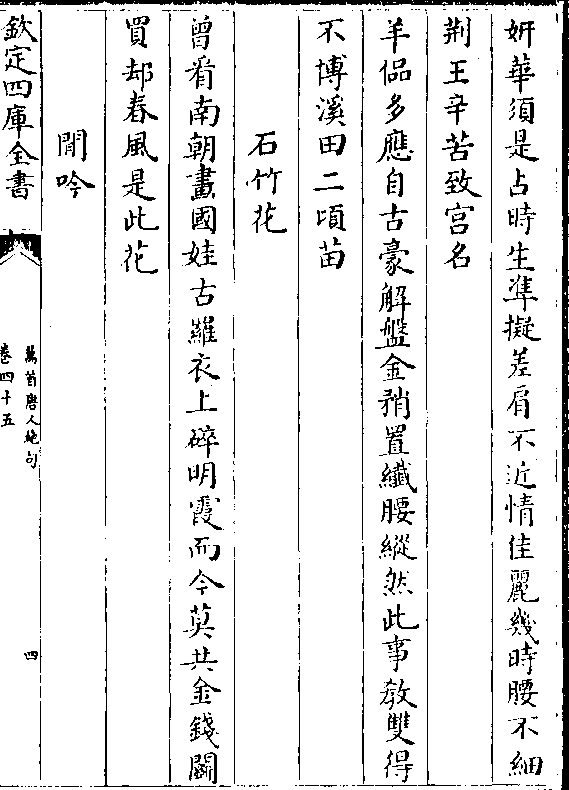 妍華須是占時生準擬差肩不近情佳麗幾時腰不細
荆王辛苦致宫名
羊侃多應自古豪解盤金矟置纎腰縱然此事教雙得
不博溪田二頃苗
石竹花
曾看南朝畫國娃古蘿衣上碎明霞而今莫共金錢鬬
買却春風是此花
閒吟
欽定四庫全書
萬首唐人絶句
卷四十五
四